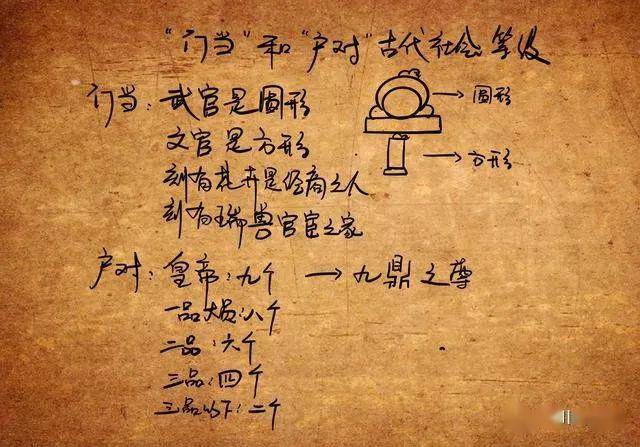 “门当”和“户对”古代社会等级
门当：武官是圆形
文官是方形
刻有花卉是经商之人
刻有瑞兽官宦之家
→圆形
→方形
户对：皇帝：九个 → 九鼎之尊
一品大员：八个
二品：六个
三品：四个
三品以下：二个